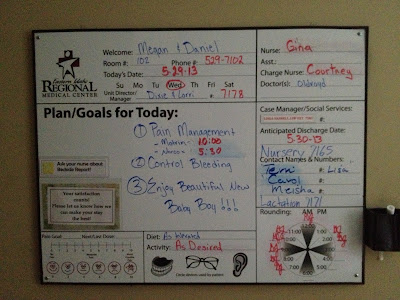 Eastern Idaho
REGIONAL
MEDICAL CENTER
Welcome: Megan & Daniel
Room #: 102 Phone #: 529-7102
Today's Date: 5-29-13
Su Mo Tu Wed Thu Fri Sat
Unit Director/
Manager: Dixie & Lorri #: 7178
Nurse: Gina
Asst.:
Charge Nurse: Courtney
Doctor(s):
Plan/Goals for Today:
① Pain Management
- Motrin - 10:00
- Norco - 5:30
② Control Bleeding
③ Enjoy Beautiful New
Baby Boy!!!
Ask your nurse about
Bedside Report!
Your satisfaction
counts!
Please let us know how we
can make your stay
the best!
Pain Level
Diet: As tolerated
Activity: As Desired
Case Manager/Social Services:
#:
Anticipated Discharge Date:
5-30-13
Nursery 7165
Contact Names & Numbers:
Terri #: Lisa
Carol #:
Meisha #:
Lactation 7171
Rounding: AM PM